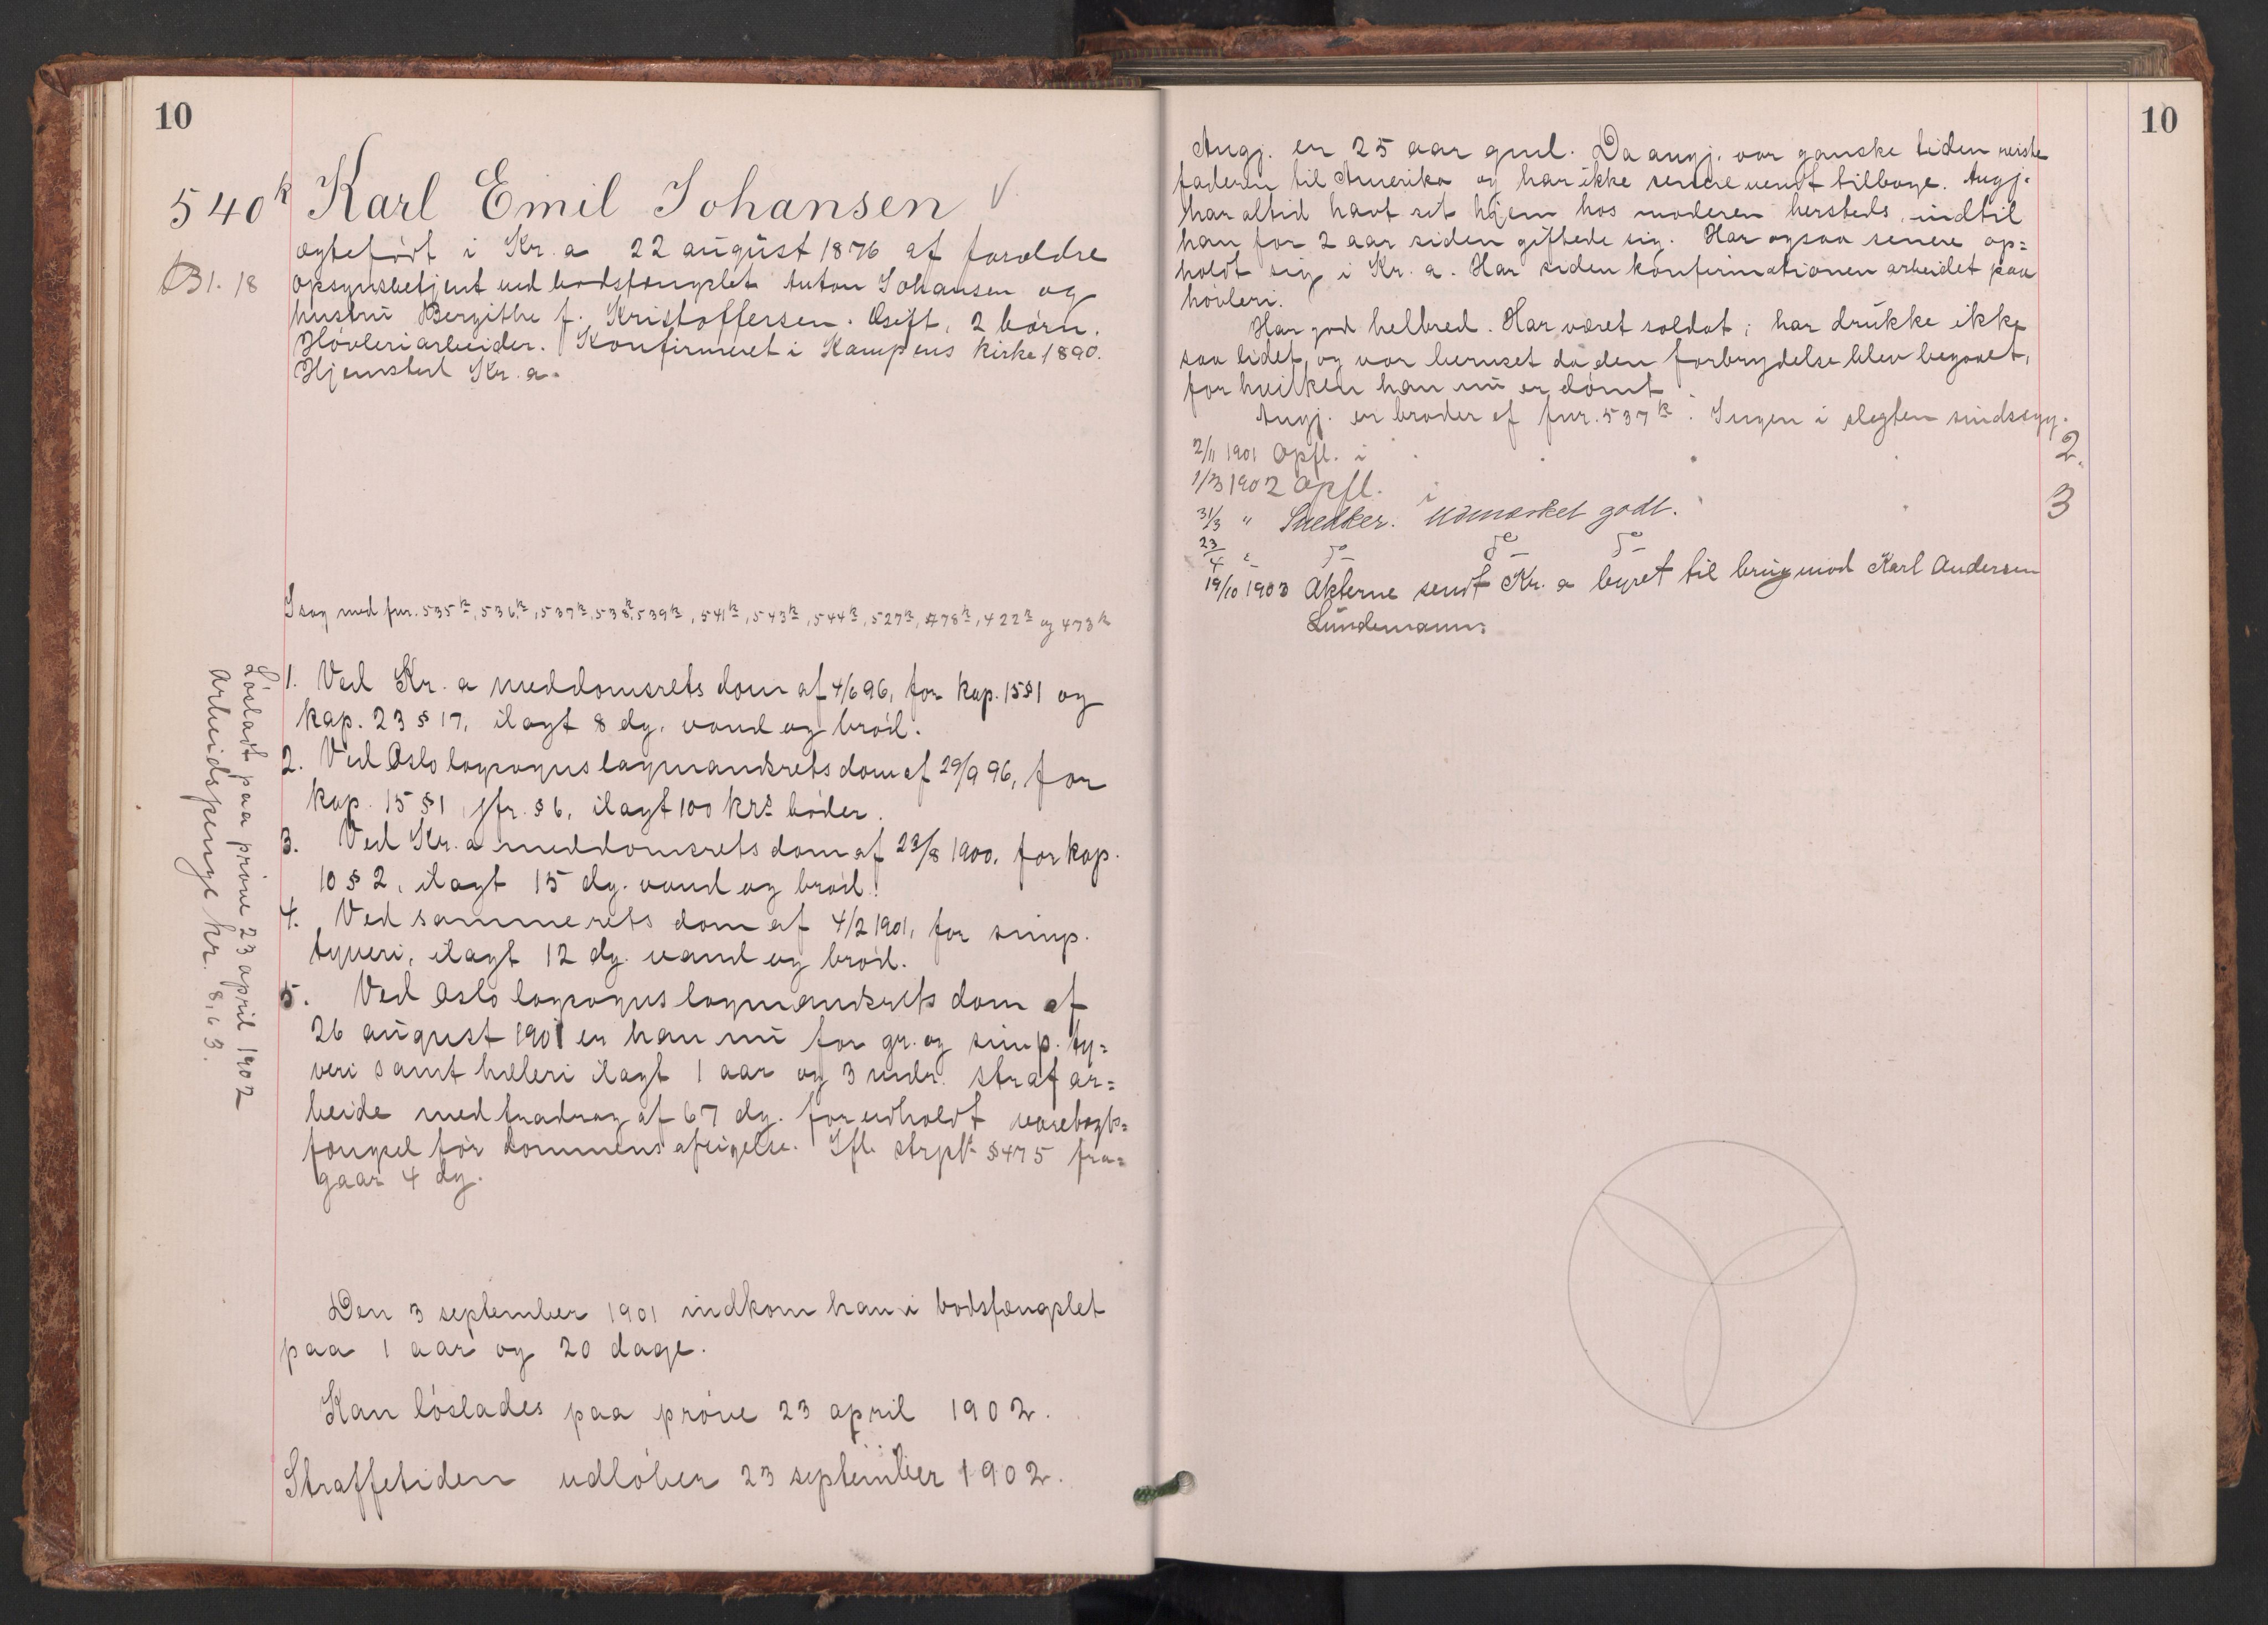 10
540k Karl Emil Johansen
ægtefødt i Kr.a 22 august 1876 af forældre
B1. 18
opsynsbetjent ved bodsfængslet Anton Johansen og
hustru Bergithe f. Kristoffersen. Gift, 2 børn.
Høvleriarbeider. Konfirmeret i Kampens kirke 1890.
Hjemsted Kr.a.
I sag med fnr. 535k, 536k, 537k, 538k, 539k, 541k, 543k, 544k, 527k, 478k, 422k og 473k
1. Ved Kr.a meddomsrets dom af 4/6 96, for kap. 15 § 1 og
kap. 23 § 17, ilagt 8 dg. vand og brød.
2. Ved Oslo lagsogns lagmandsrets dom af 29/9 96, for
kap. 15 § 1, jfr. § 6, ilagt 100 krs bøder.
3. Ved Kr.a meddomsrets dom af 23/8 1900, for kap.
10 § 2, ilagt 15 dg. vand og brød.
4. Ved samme rets dom af 4/2 1901, for simp.
tyveri, ilagt 12 dg. vand og brød.
5. Ved Oslo lagsogns lagmandsrets dom af
26 august 1901 er han nu for gr. og simp. ty=
veri samt hæleri ilagt 1 aar og 3 mdr. strafar=
beide med fradrag af 67 dg. for udholdt varetægts=
fængsel før dommens afsigelse. Ifl. strpl. § 475 fra=
gaar 4 dg.
Løsladt paa prøve 23 april 1902
Arbeidspenge kr. 8,63.
Den 3 september 1901 indkom han i bodsfængslet
paa 1 aar og 20 dage.
Kan løslades paa prøve 23 april 1902.
Straffetiden udløber 23 september 1902.
10
Angj. er 25 aar gml. Da angj. var ganske liden reiste
faderen til Amerika og har ikke senere vendt tilbage. Angj.
har altid havt sit hjem hos moderen hersteds, indtil
han for 2 aar siden giftede sig. Har ogsaa senere op=
holdt sig i Kr.a. Har siden konfirmationen arbeidet paa
høvleri.
Har god helbred. Har været soldat; har drukke ikke
saa lidet, og var beruset da den forbrydelse blev begaaet,
for hvilken han nu er dømt.
Angj. er broder af fnr. 537k. Ingen i slegten sindssyg.
2/11 1901 Opfl. i 2.
1/3 1902 Opfl. i 3
31/3 " Snedker. Udmærket godt.
23/4 " do do do
19/10 1903 Akterne sendt Kr.a byret til brug mod Karl Andersen
Lundemann.